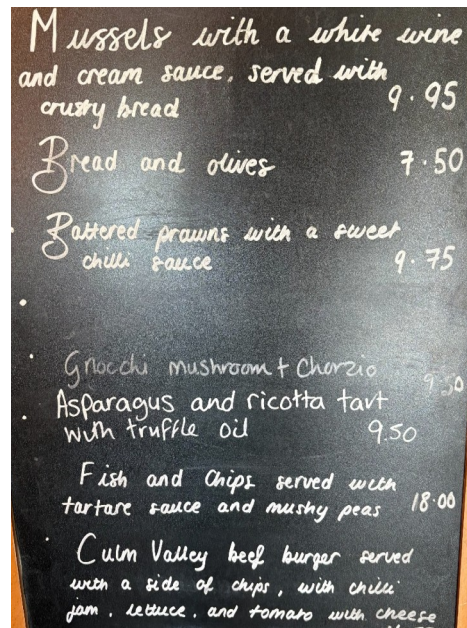 Mussels with a white wine
and cream sauce, served with
crusty bread 9.95
Bread and olives 7.50
Battered prawns with a sweet
chilli sauce 9.75
Gnocchi mushroom + Chorzio 9.50
Asparagus and ricotta tart
with truffle oil 9.50
Fish and Chips served with
tartare sauce and mushy peas 18.00
Culm Valley beef burger served
with a side of chips, with chilli
jam, lettuce, and tomato with cheese